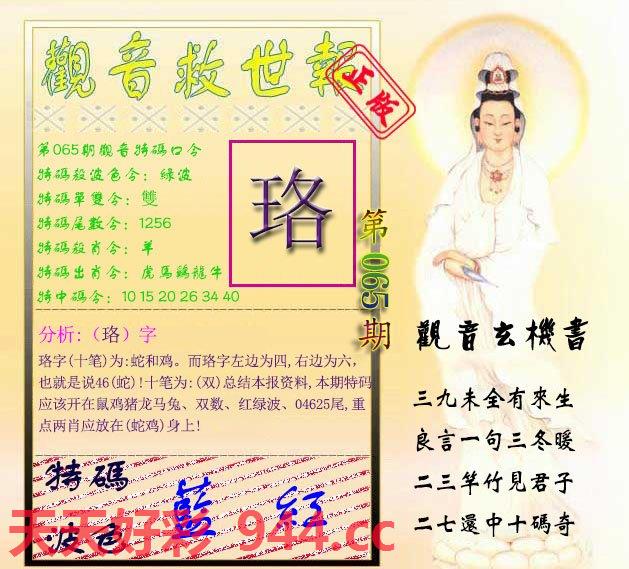 觀音救世報
正版
第065期觀音特碼口令
特碼殺波色令：綠波
特碼單雙令：雙
特碼尾數令：1256
特碼殺肖令：羊
特碼出肖令：虎馬鷄龍牛
特中碼令：10 15 20 26 34 40
珞
第065期
分析:（珞）字
珞字(十笔)为:蛇和鸡。而珞字左边为四,右边为六，
也就是说46(蛇)!十笔为:(双)总结本报资料,本期特码
应该开在鼠鸡猪龙马兔、双数、红绿波、04625尾,重
点两肖应放在(蛇鸡)身上!
特碼
波色
藍 紅
天天好彩 944.cc
觀音玄機書
三九未全有來生
良言一句三冬暖
二三竿竹見君子
二七還中十碼奇